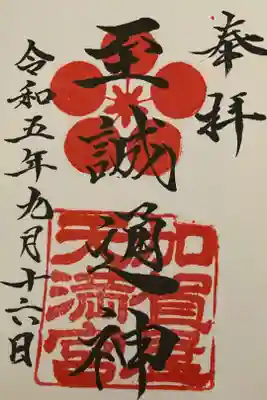 奉拝
至誠通神
加賀
天満宮
令和五年九月十六日